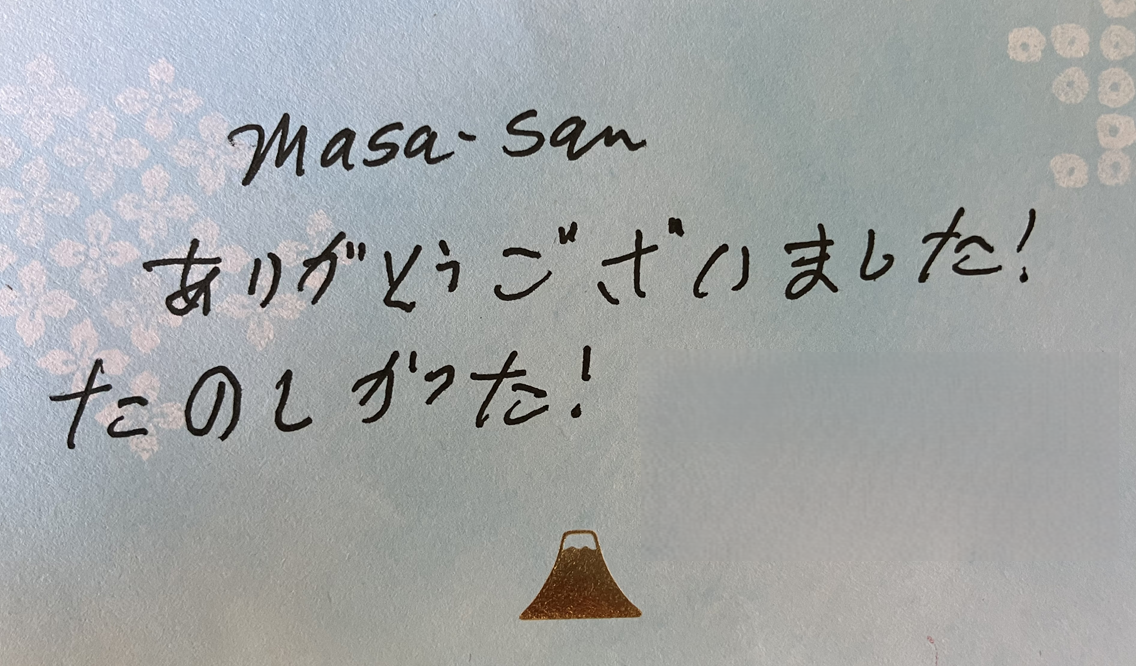 Masa-san
ありがとうございました!
たのしかった!